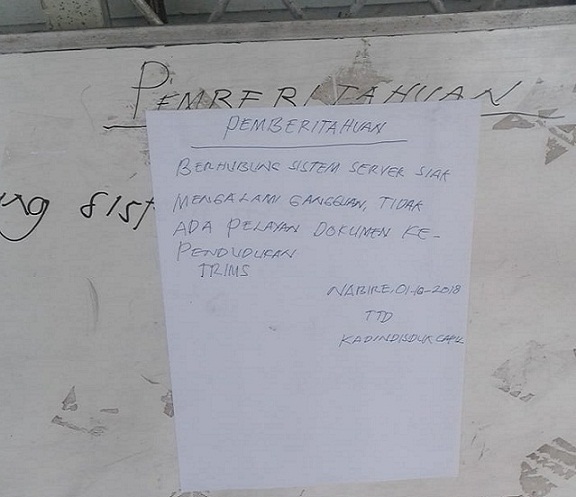 PEMBERITAHUAN
PEMBERITAHUAN
BERHUBUNG SISTEM SERVER SIAK
ung sist
MENGALAMI GANGGUAN, TIDAK
ADA PELAYAN DOKUMEN KE-
PENDUDUKAN
TRIMS
NABIRE, 01-10-2018
TTD
KADINDISDUKCAPIL